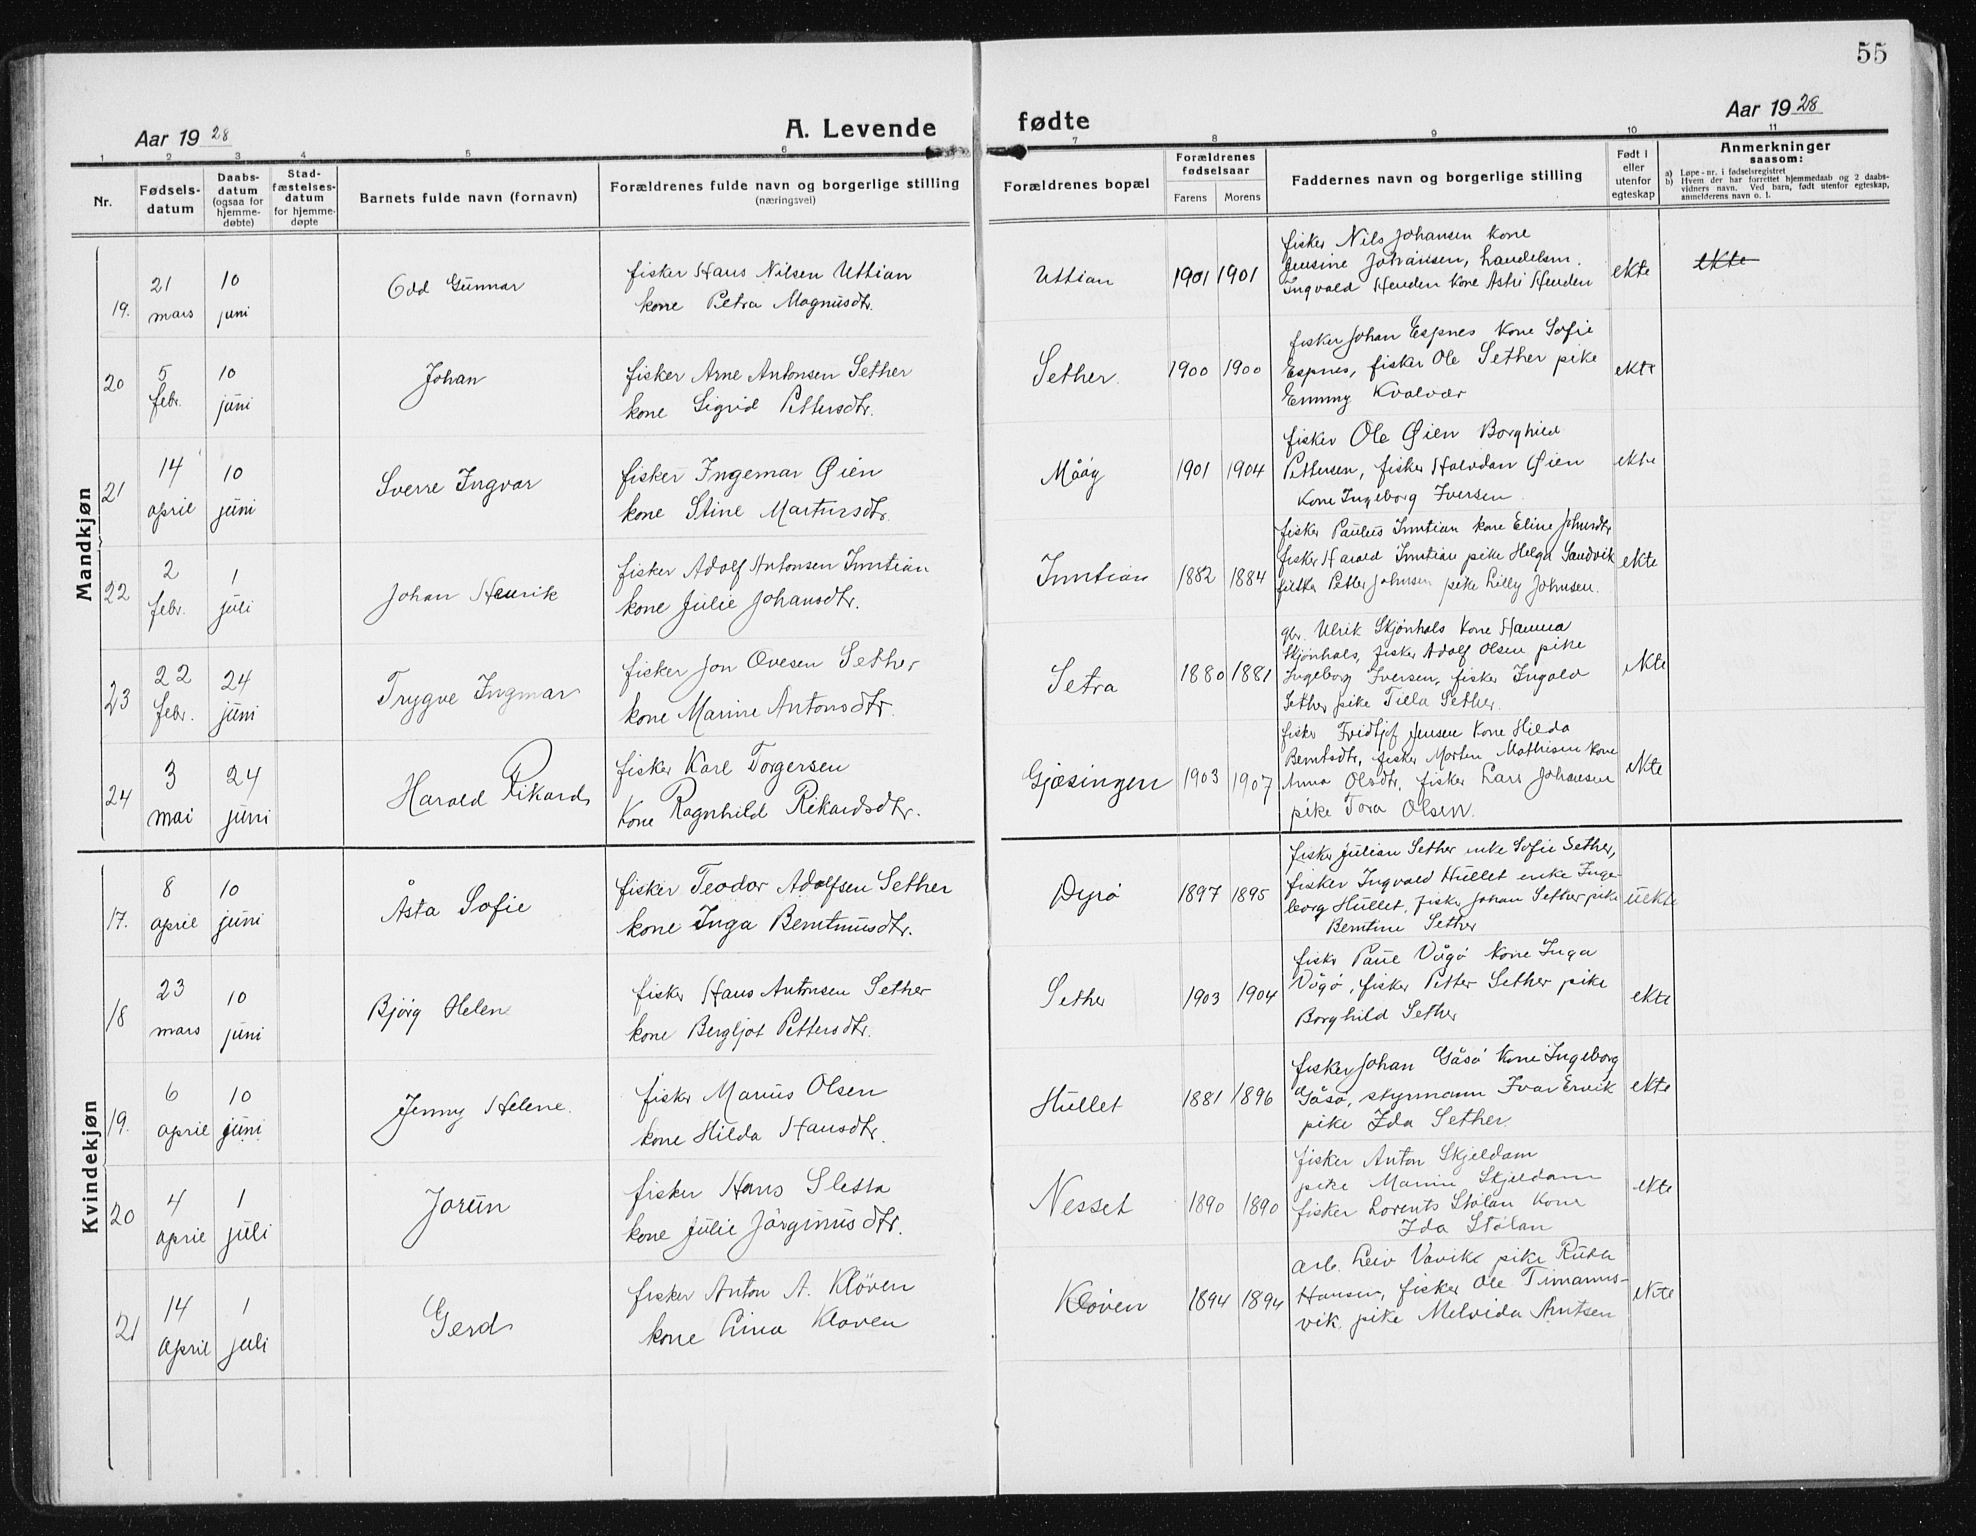 55
Aar 1928
A. Levende fødte
Aar 1928
1 2 3 4 5 6 7 8 9 10 11
Nr.
Fødsels-
datum
Daabs-
datum
(ogsaa for
hjemme-
døbte)
Stad-
fæstelses-
datum
for hjemme-
døpte
Barnets fulde navn (fornavn)
Forældrenes fulde navn og borgerlige stilling
(næringsvei)
Forældrenes bopæl
Forældrenes
fødselsaar
Farens Morens
Faddernes navn og borgerlige stilling
Født i
eller
utenfor
egteskap
Anmerkninger
saasom:
a) Løpe-nr. i fødselsregistret
b) Hvem der har forrettet hjemmedaab og 2 daabs-
vidners navn. Ved barn, født utenfor egteskap,
anmelderens navn o. l.
Mandkjøn
19.
21
mars
10
juni
Odd Gunnar
fisker Hans Nilsen Uttian
kone Petra Magnusdtr.
Uttian
1901 1901
fisker Nils Johansen kone
Jensine Johansen, handelsm.
Ingvald Henden kone Astri Henden
ekte
ekte
20
5
febr.
10
juni
Johan
fisker Arne Antonsen Sether
kone Sigrid Pettersdtr.
Sether
1900 1900
fisker Johan Espnes kone Sofie
Espnes, fisker Ole Sether pike
Emmy Kvalvær
ekte
21
14
april
10
juni
Sverre Ingvar
fisker Ingemar Øien
kone Stine Martinsdtr.
Måøy
1901 1904
fisker Ole Øien Borghild
Pettersen, fisker Halvdan Øien
kone Ingeborg Iversen
ekte
22
2
febr.
1
juli
Johan Henrik
fisker Adolf Antonsen Inntian
kone Julie Johansdtr.
Inntian
1882 1884
fisker Paulus Inntian kone Eline Johnsdtr
fisker Harald Inntian pike Helga Sandvik
fisker Petter Johnsen pike Lilly Johnsen.
ekte
23
22
febr.
24
juni
Trygve Ingmar
fisker Jon Ovesen Sether
kone Marine Antonsdtr.
Setra
1880 1881
gbr. Ulrik Skjønhals kone Hanna
Skjønhals, fisker Adolf Olsen pike
Ingeborg Iversen, fisker Ingvald
Sether pike Tilla Sether.
ekte
24
3
mai
24
juni
Harald Rikard
fisker Karl Torgersen
kone Ragnhild Rikardsdtr.
Gjæsingen
1903 1907
fisker Fridtjof Jensen kone Hilda
Berntsdtr, fisker Morten Mathisen kone
Anna Olsdtr, fisker Lars Johansen
pike Tora Olsen.
ekte
Kvindekjøn
17.
8
april
10
juni
Åsta Sofie
fisker Teodor Adolfsen Sether
kone Inga Berntinusdtr.
Dyrø
1897 1895
fisker Julian Sether enke Sofie Sether,
fisker Ingvald Hullet enke Inge-
borg Hullet, fisker Johan Sether pike
Berntine Sether
uekte
18
23
mars
10
juni
Bjørg Helene
fisker Hans Antonsen Sether
kone Bergljot Pettersdtr.
Sether
1903 1904
fisker Paul Vågø kone Inga
Vågø, fisker Petter Sether pike
Borghild Sether
ekte
19.
6
april
10
juni
Jenny Helene.
fisker Marius Olsen
kone Hilda Hansdtr.
Hullet
1881 1896
fisker Johan Gåsø kone Ingeborg
Gåsø, styrmann Ivar Ervik
pike Ida Sether
ekte
20
4
april
1
juli
Jorun
fisker Hans Sletta
kone Julie Jørginusdtr.
Nesset
1890 1890
fisker Anton Skjeldam
pike Marine Skjeldam
fisker Lorents Stølan kone
Ida Stølan
ekte
21
14
april
1
juli
Gerd
fisker Anton A. Kløven
kone Lina Kløven
Kløven
1894 1894
arb. Leiv Vavik pike Ruth
Hansen, fisker Ole Timanns-
vik, pike Melvida Arntsen
ekte